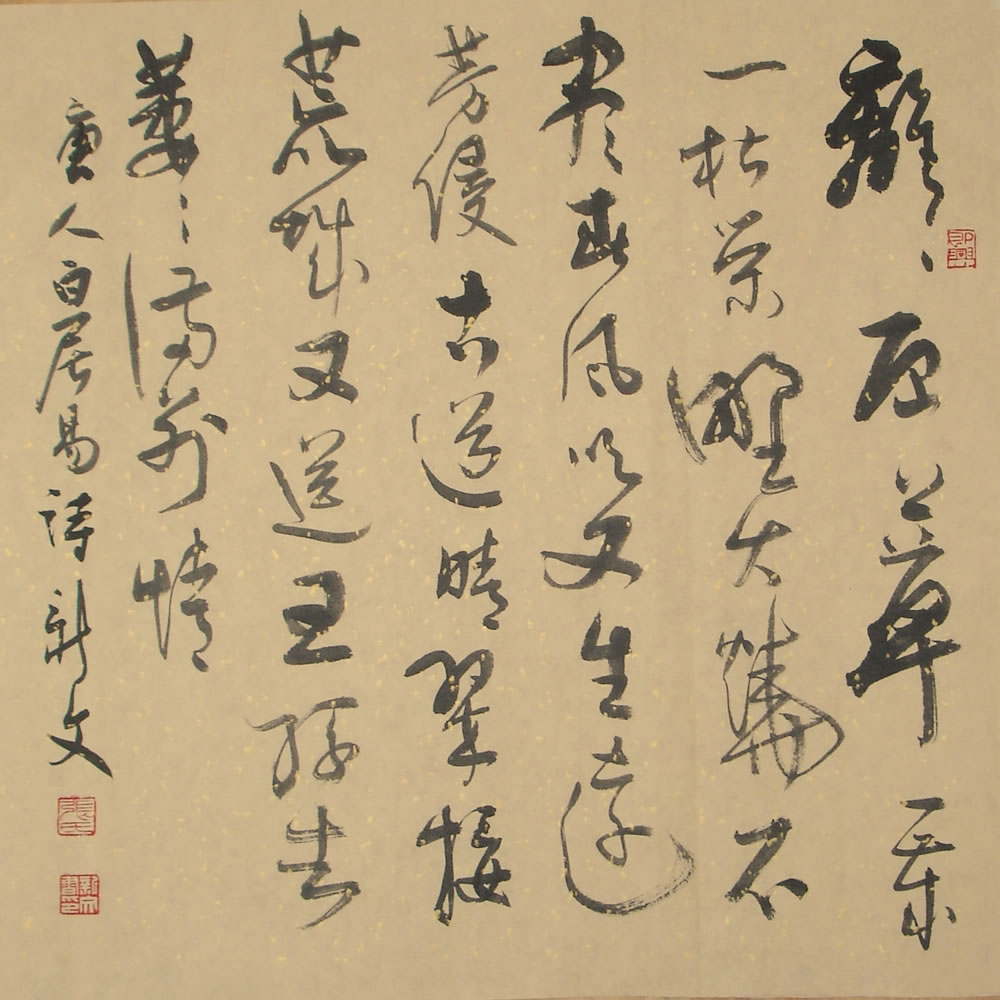 離〻原上草一歲
一枯榮野火燒不
尽春風吹又生遠
芳侵古道晴翠接
荒城又送王孫去
萋〻滿別情
唐人白居易詩新文
即興
張氏